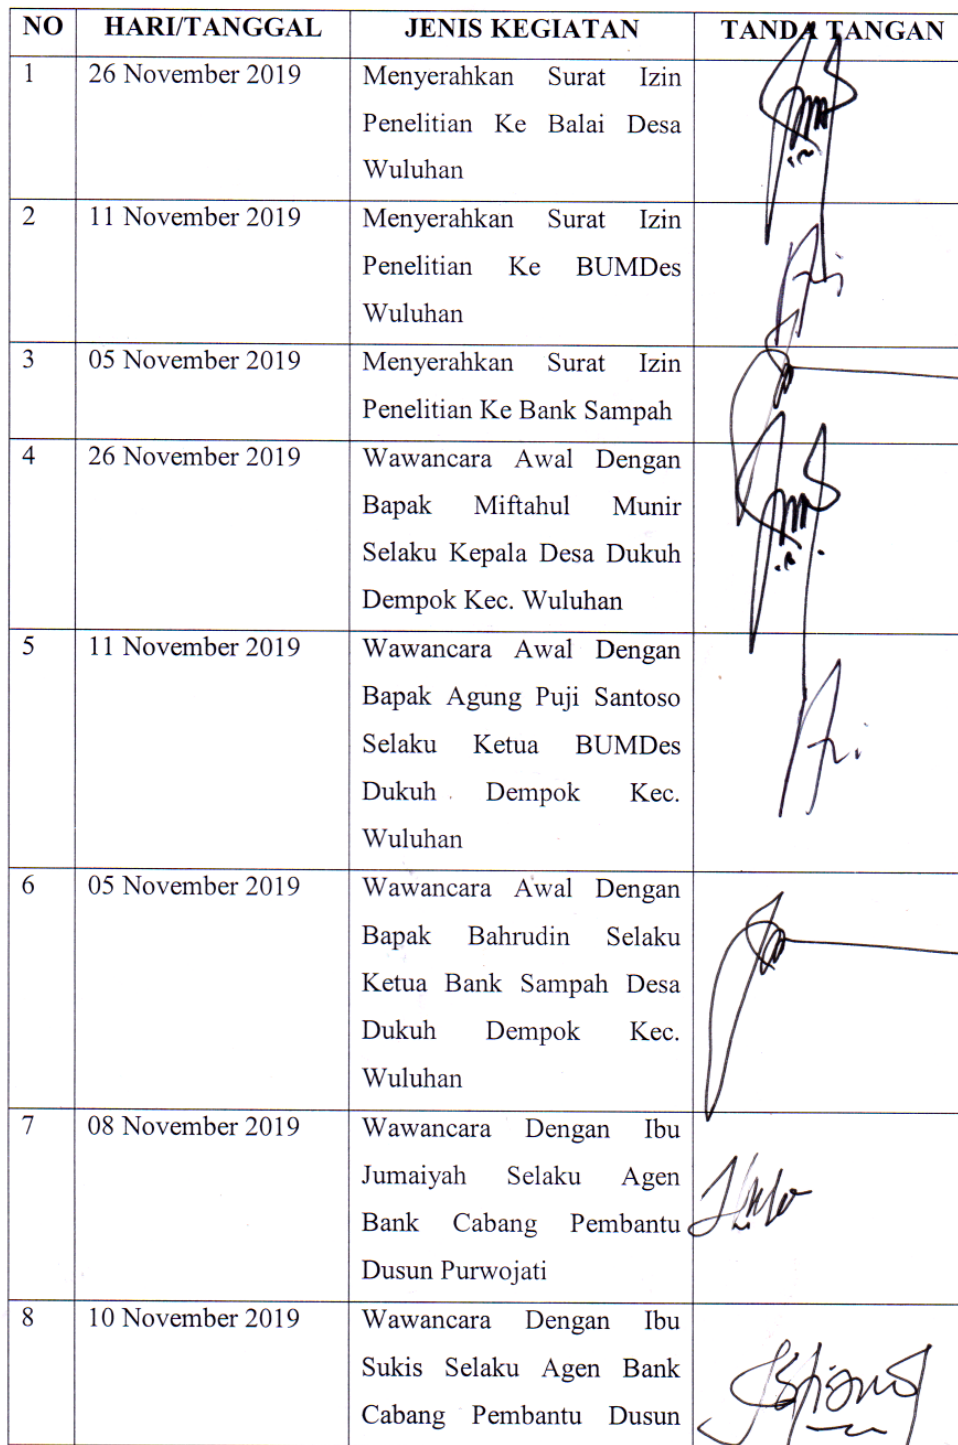 NO HARI/TANGGAL JENIS KEGIATAN TANDA TANGAN
1 26 November 2019 Menyerahkan Surat Izin
Penelitian Ke Balai Desa
Wuluhan
2 11 November 2019 Menyerahkan Surat Izin
Penelitian Ke BUMDes
Wuluhan
3 05 November 2019 Menyerahkan Surat Izin
Penelitian Ke Bank Sampah
4 26 November 2019 Wawancara Awal Dengan
Bapak Miftahul Munir
Selaku Kepala Desa Dukuh
Dempok Kec. Wuluhan
5 11 November 2019 Wawancara Awal Dengan
Bapak Agung Puji Santoso
Selaku Ketua BUMDes
Dukuh Dempok Kec.
Wuluhan
6 05 November 2019 Wawancara Awal Dengan
Bapak Bahrudin Selaku
Ketua Bank Sampah Desa
Dukuh Dempok Kec.
Wuluhan
7 08 November 2019 Wawancara Dengan Ibu
Jumaiyah Selaku Agen
Bank Cabang Pembantu
Dusun Purwojati
8 10 November 2019 Wawancara Dengan Ibu
Sukis Selaku Agen Bank
Cabang Pembantu Dusun